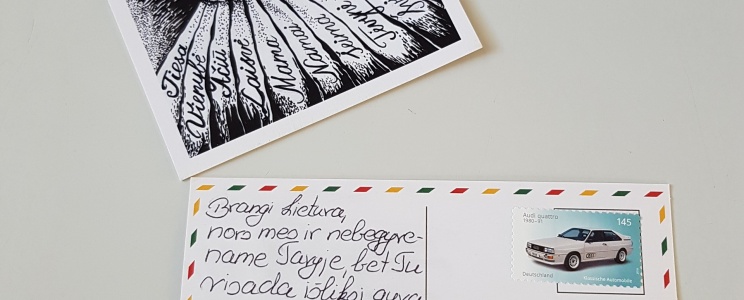 Tiesa
Vienybė
Ačiū
Laisvė
Mama
Namai
Šeima
Tėvynė
Brangi Lietuva,
nors mes ir nebegyve-
name Tavyje, bet Tu
visada išliksi gyva
Audi quattro
1980-91
145
Deutschland
Klassische Automobile